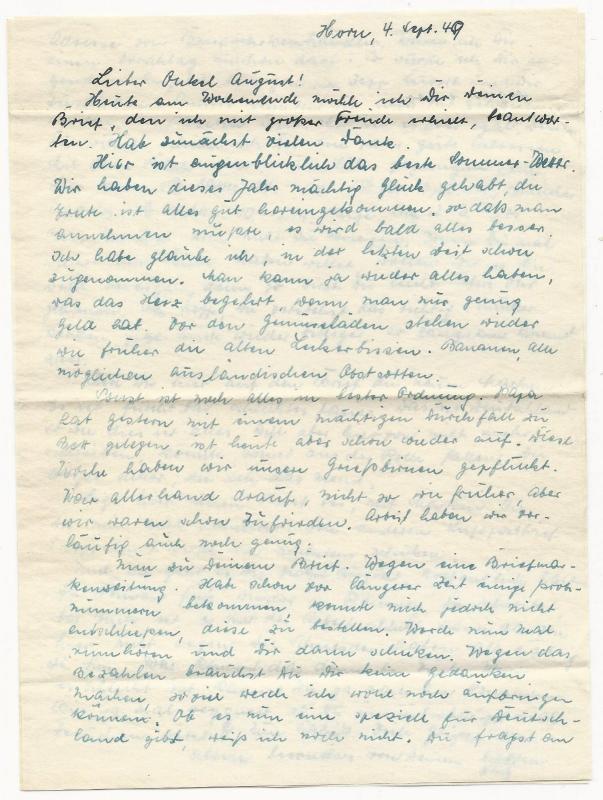 Horn, 4. Sept. 49
Lieber Onkel August!
Heute am Wochenende möchte ich Dir Deinen
Brief, den ich mit großer Freude erhielt, beantwor-
ten. Hab zunächst vielen Dank.
Hier ist augenblicklich das beste Sommer-Wetter.
Wir haben dieses Jahr mächtig Glück gehabt, die
Ernte ist alles gut hereingekommen, so daß man
annehmen müßte, es wird bald alles besser.
Ich habe glaube ich, in der letzten Zeit schon
zugenommen. Man kann ja wieder alles haben,
was das Herz begehrt, wenn man nur genug
Geld hat. Vor den Gemüseläden stehen wieder
wie früher die alten Leckerbissen. Bananen, alle
möglichen ausländischen Obstsorten.
Sonst ist noch alles in bester Ordnung. Papa
hat gestern mit einem mächtigen Durchfall zu
Bett gelegen ist heute aber schon wieder auf. Diese
Woche haben wir unsere Griesbirnen gepflückt.
War allerhand drauf, nicht so wie früher, aber
wir waren schon zufrieden. Arbeit haben wir vor-
läufig auch noch genug.
Nun zu Deinem Brief. Wegen eine Briefmar-
kenzeitung. Habe schon vor längerer Zeit einige Prob-
nummern bekommen, konnte mich jedoch nicht
entschließen, diese zu bestellen. Werde nun mal
rumhören und Dir dann schicken. Wegen das
Bezahlen brauchst Du Dir kein Gedanken
machen, soviel werde ich wohl noch aufbringen
können. Ob es nun eine spezielle für Deutsch-
land gibt, weiß ich noch nicht. Du fragst an